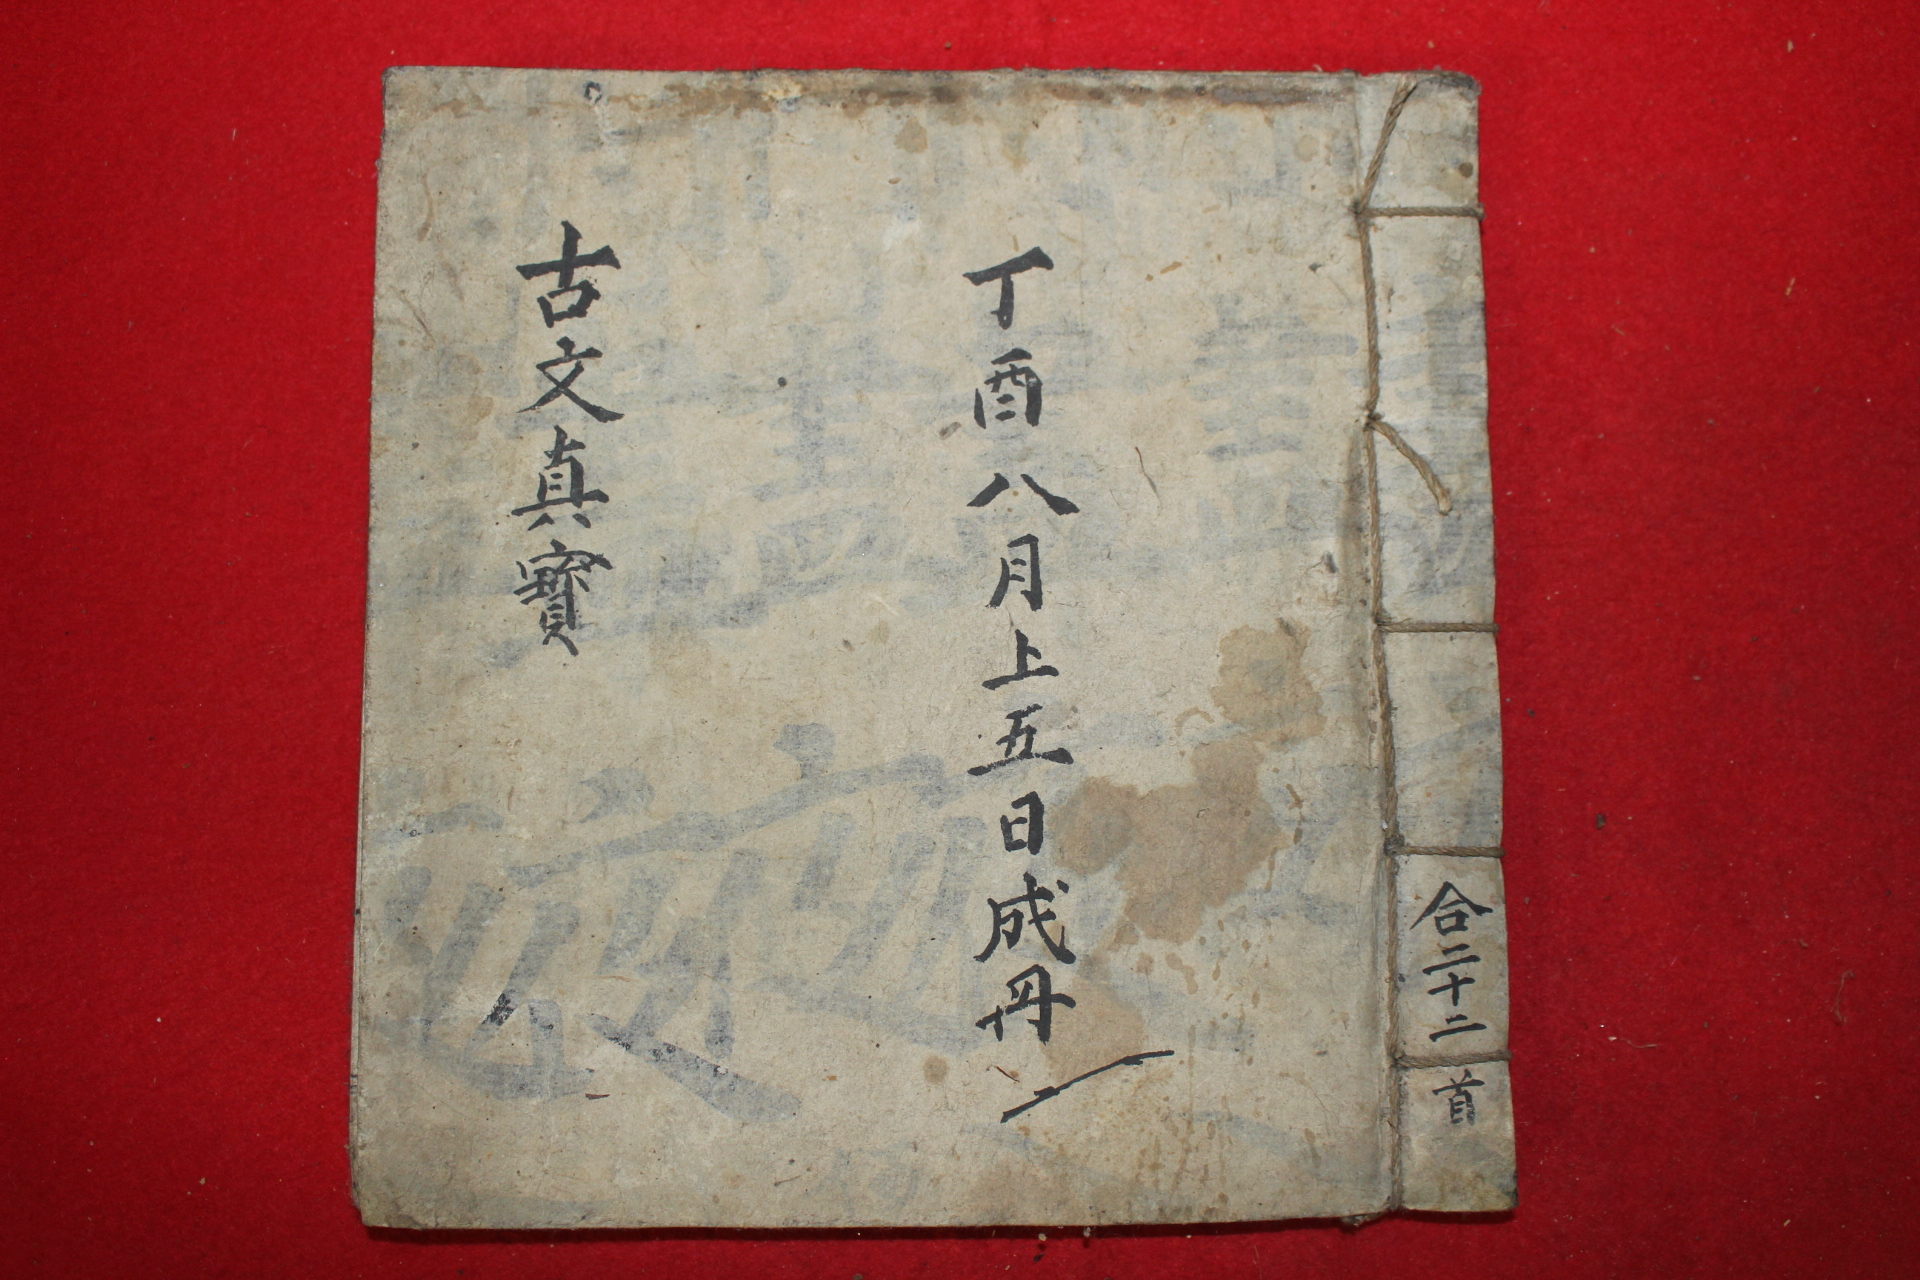 合二十二首
丁酉八月上五日成丹
古文真寳